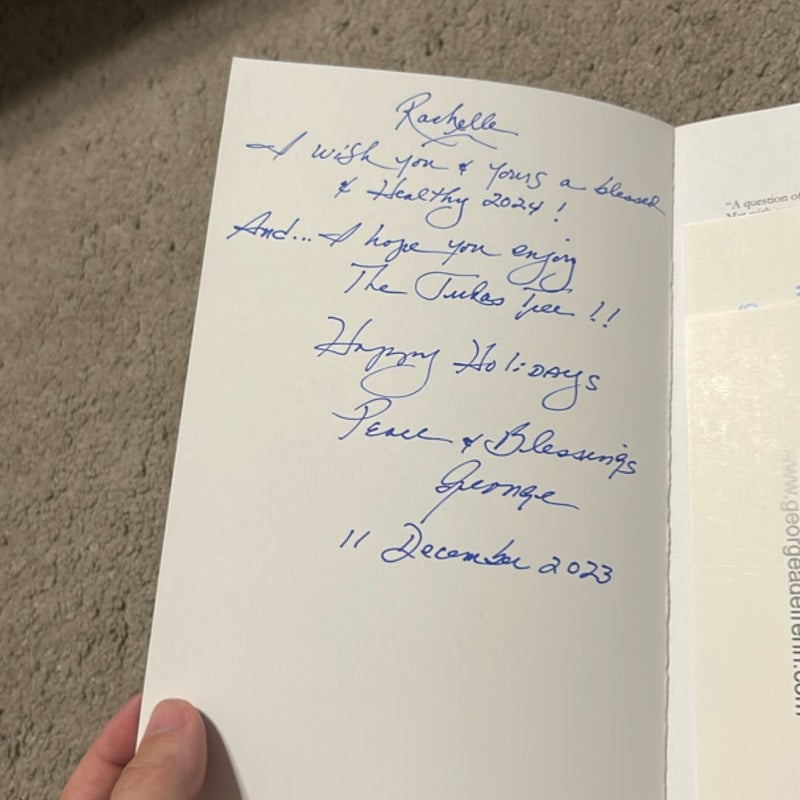 Rachelle
I wish you & yours a blessed
& Healthy 2024!
And... I hope you enjoy
The Tukas Tree!!
Happy Holidays
Peace & Blessings
George
11 December 2023
"A question of